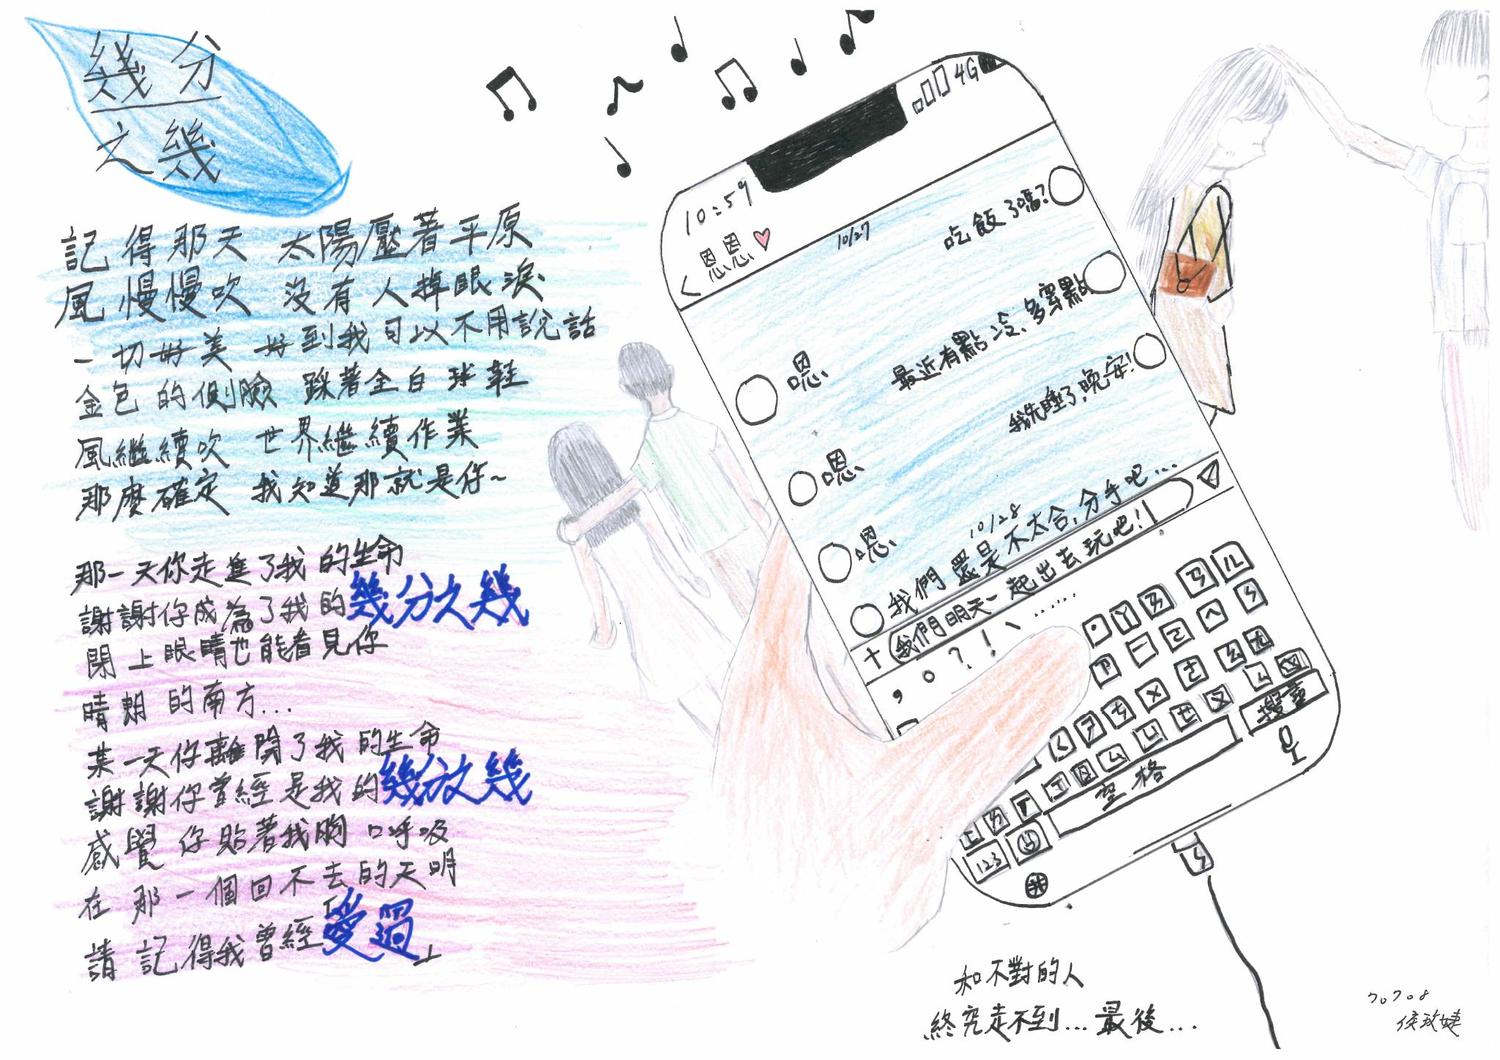 幾分
之幾
記得那天 太陽壓著平原
風慢慢吹 沒有人掉眼淚
一切好美 好到我可以不用說話
金色的側臉 踩著全白球鞋
風繼續吹 世界繼續作業
那麼確定 我知道那就是你~
那一天你走進了我的生命
謝謝你成為了我的幾分之幾
閉上眼睛也能看見你
晴朗的南方...
某一天你離開了我的生命
謝謝你曾經是我的幾分之幾
感覺 你貼著我胸口呼吸
在那一個回不去的天明
請記得我曾經「愛過」
10:59
4G
< 恩恩
10/27
吃飯了嗎?
嗯
最近有點冷,多穿點
嗯
我先睡了,晚安!
嗯
10/28
我們還是不太合,分手吧...
+ 我們明天一起出去玩吧!
, 。 ? ! 、 ......
空格
搜尋
123
和不對的人
終究走不到...最後...
70708
侯玫婕